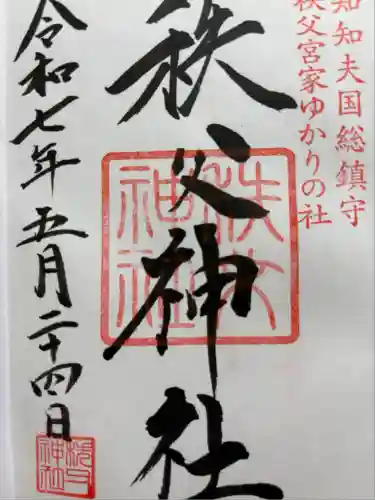 知知夫国総鎮守
秩父宮家ゆかりの社
秩父神社
秩父神社
令和七年五月二十四日
秩父神社